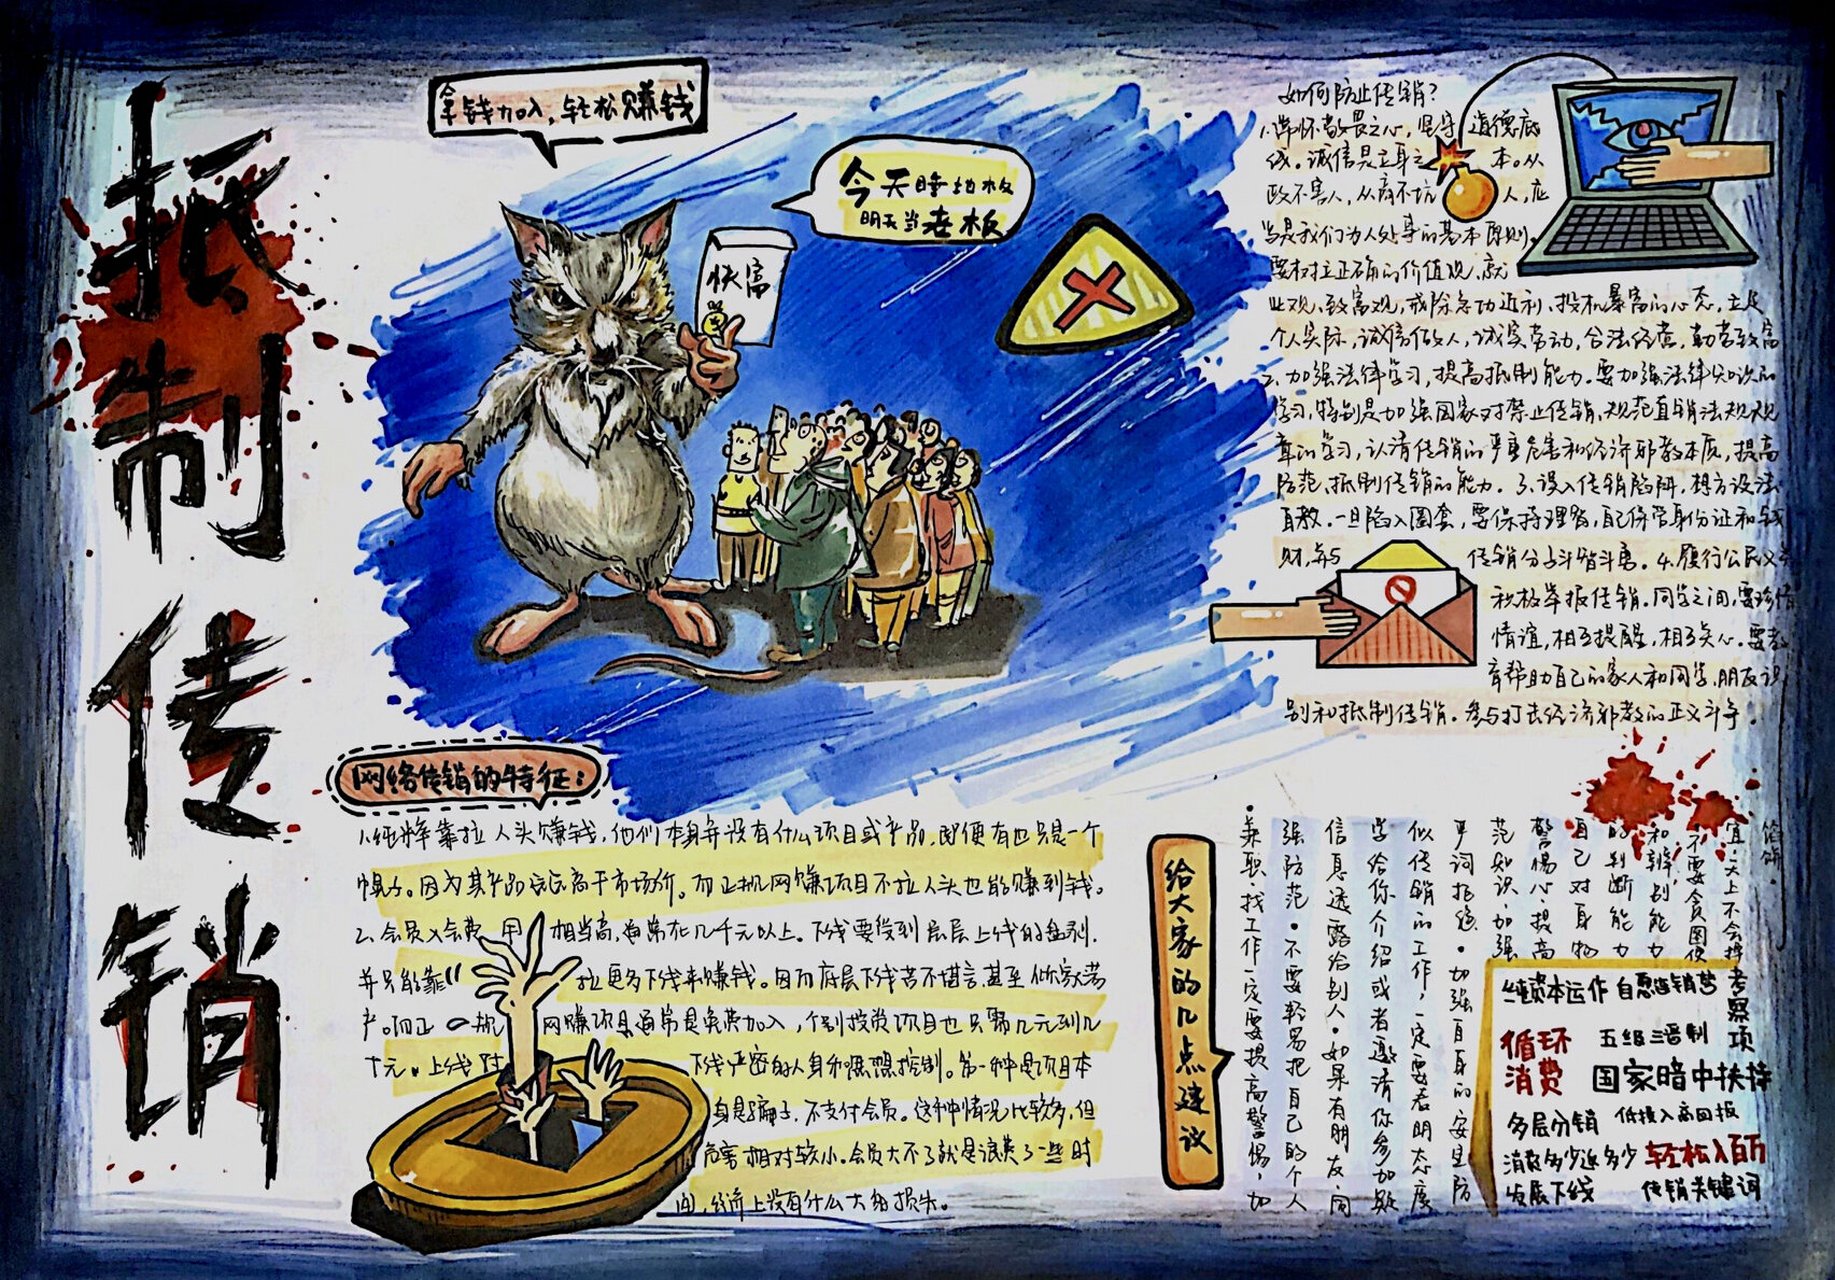 抵制传销
拿钱加入，轻松赚钱
今天睡地板
明天当老板
快富
如何防止传销？
1.常怀敬畏之心，坚守道德底
线。诚信是立身之本。从
政不害人，从商不坑人，应
当是我们为人处事的基本原则。
要树立正确的价值观、就
业观、致富观，戒除急功近利、投机暴富的心态，立足
个人实际，诚信做人，诚实劳动，合法经营，勤劳致富
2.加强法律学习，提高抵制能力。要加强法律知识的
学习，特别是加强国家对禁止传销，规范直销法规规
章的学习，认清传销的严重危害和经济邪教本质，提高
防范、抵制传销的能力。3、误入传销陷阱，想方设法
自救。一旦陷入圈套，要保持理智，自己保管身份证和钱
财，与传销分子斗智斗勇。4.履行公民义务
积极举报传销。同学之间，要珍惜
情谊，相互提醒，相互关心。要教
育帮助自己的家人和同学、朋友识
别和抵制传销。参与打击经济邪教的正义斗争。
网络传销的特征：
1.纯粹靠拉人头赚钱，他们本身并没有什么项目或产品，即便有也只是一个
幌子。因为其产品远远高于市场价。而正规网赚项目不拉人头也能赚到钱。
2、会员入会费用相当高，通常在几千元以上。下线要受到层层上线的盘剥，
并只能靠拉更多下线来赚钱。因而底层下线苦不堪言，甚至倾家荡
产。而正规网赚项目通常是免费加入，个别投资项目也只需几元到几
十元。上线对下线严密的人身和思想控制。第一种是项目本
身是骗子，不支付会员。这种情况比较多，但
危害相对较小。会员大不了就是浪费了一些时
间，经济上没有什么大的损失。
给大家的几点建议
·兼职、找工作一定要提高警惕，加
强防范。不要轻易把自己的个人
信息透露给别人。如果有朋友、同
学给你介绍或者邀请你参加疑
似传销的工作，一定要表明态度
严词拒绝。加强自身的安全防
范知识，加强
警惕心，提高
自己对事物
的判断能力
和辨别能力
不要贪图便
宜，天上不会掉
馅饼。
考察项
纯资本运作 自愿连锁营
循环
消费
五级三晋制
国家暗中扶持
多层分销 低投入高回报
消费多少返多少 轻松入百万
发展下线 传销关键词